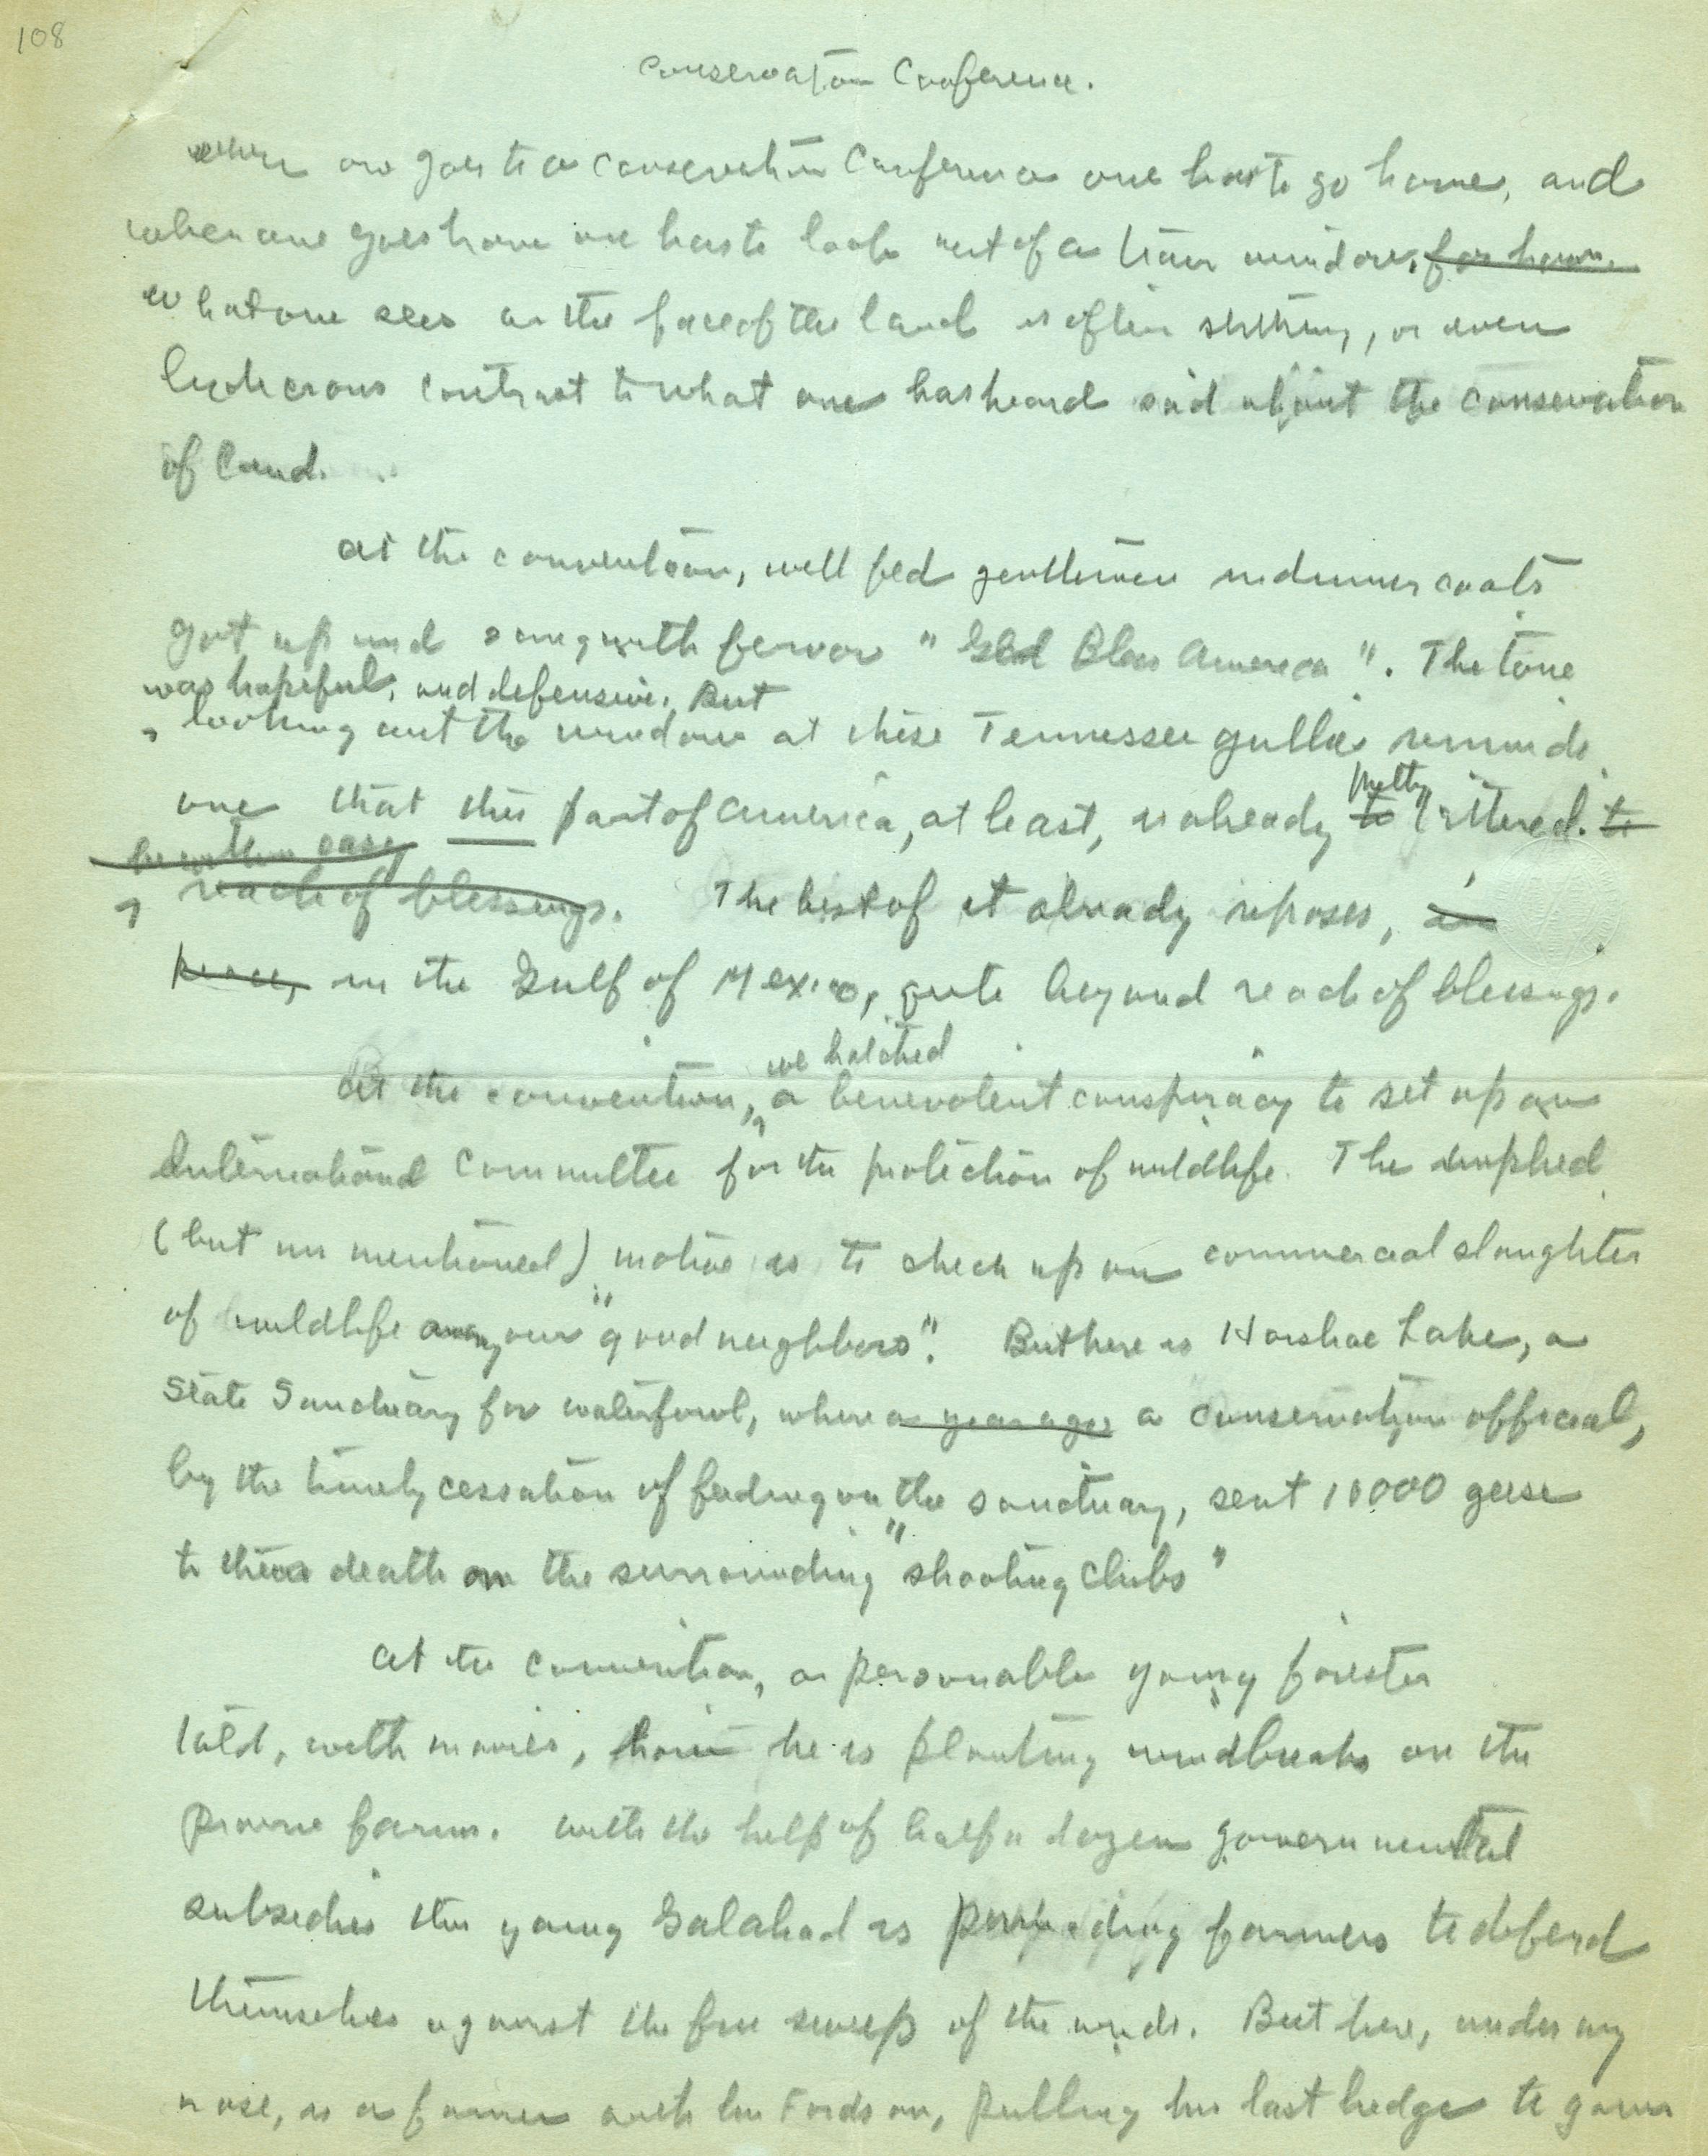 108
Conservation Conference.
When one goes to a Conservation Conference one has to go home, and
when one goes home one has to look out of a train window, for hours.
What one sees on the face of the land is often striking, or even
ludicrous contrast to what one has heard said about the conservation
of land.
At the convention, well fed gentlemen in dinner coats
got up and sang with fervor "God Bless America". The tone
was hopeful, and defensive. But
looking out the window at these Tennessee gullies reminds
one that this part of America, at least, is already pretty to littered. to
be within easy
reach of blessings. The best of it already reposes, in
peace, in the Gulf of Mexico, quite beyond reach of blessings.
we hatched
At the convention, a benevolent conspiracy to set up an
International Committee for the protection of wildlife. The implied
(but un mentioned) motive is to check up on commercial slaughter
of wildlife among our "good neighbors". But here is Horshoe Lake, a
State Sanctuary for waterfowl, where a year ago a conservation official,
by the timely cessation of feeding on the sanctuary, sent 10000 geese
to their death on the surrounding "shooting clubs"
At the convention, a personable young forester
told, with movies, how he is planting windbreaks on the
prairie farms. With the help of half a dozen governmental
subsidies this young Galahad is persuading farmers to defend
themselves against the free sweep of the winds. But here, under my
nose, is a farmer with his Fordson, pulling his last hedge to gain